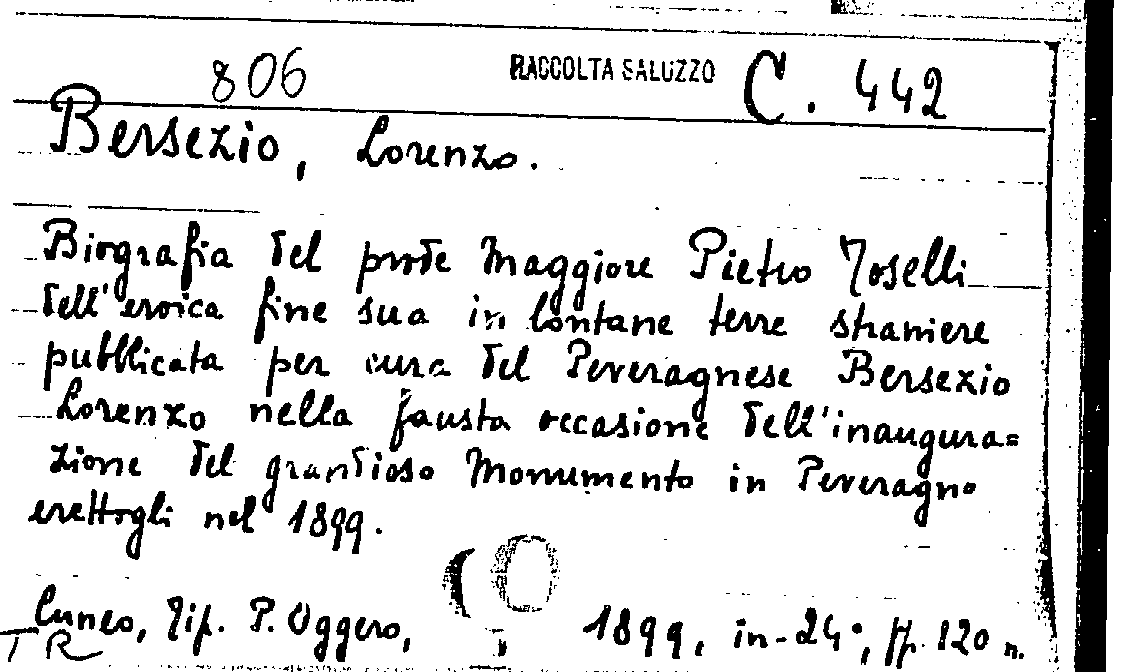 806 RACCOLTA SALUZZO C. 442
Bersezio, Lorenzo.
Biografia del prode Maggiore Pietro Toselli
dell'eroica fine sua in lontane terre straniere
pubblicata per cura del Peveragnese Bersezio
Lorenzo nella fausta occasione dell'inaugura=
zione del grandioso Monumento in Peveragno
erettogli nel 1899.
Cuneo, Tip. P. Oggero, 1899, in-24°, pp. 120 n.
TR